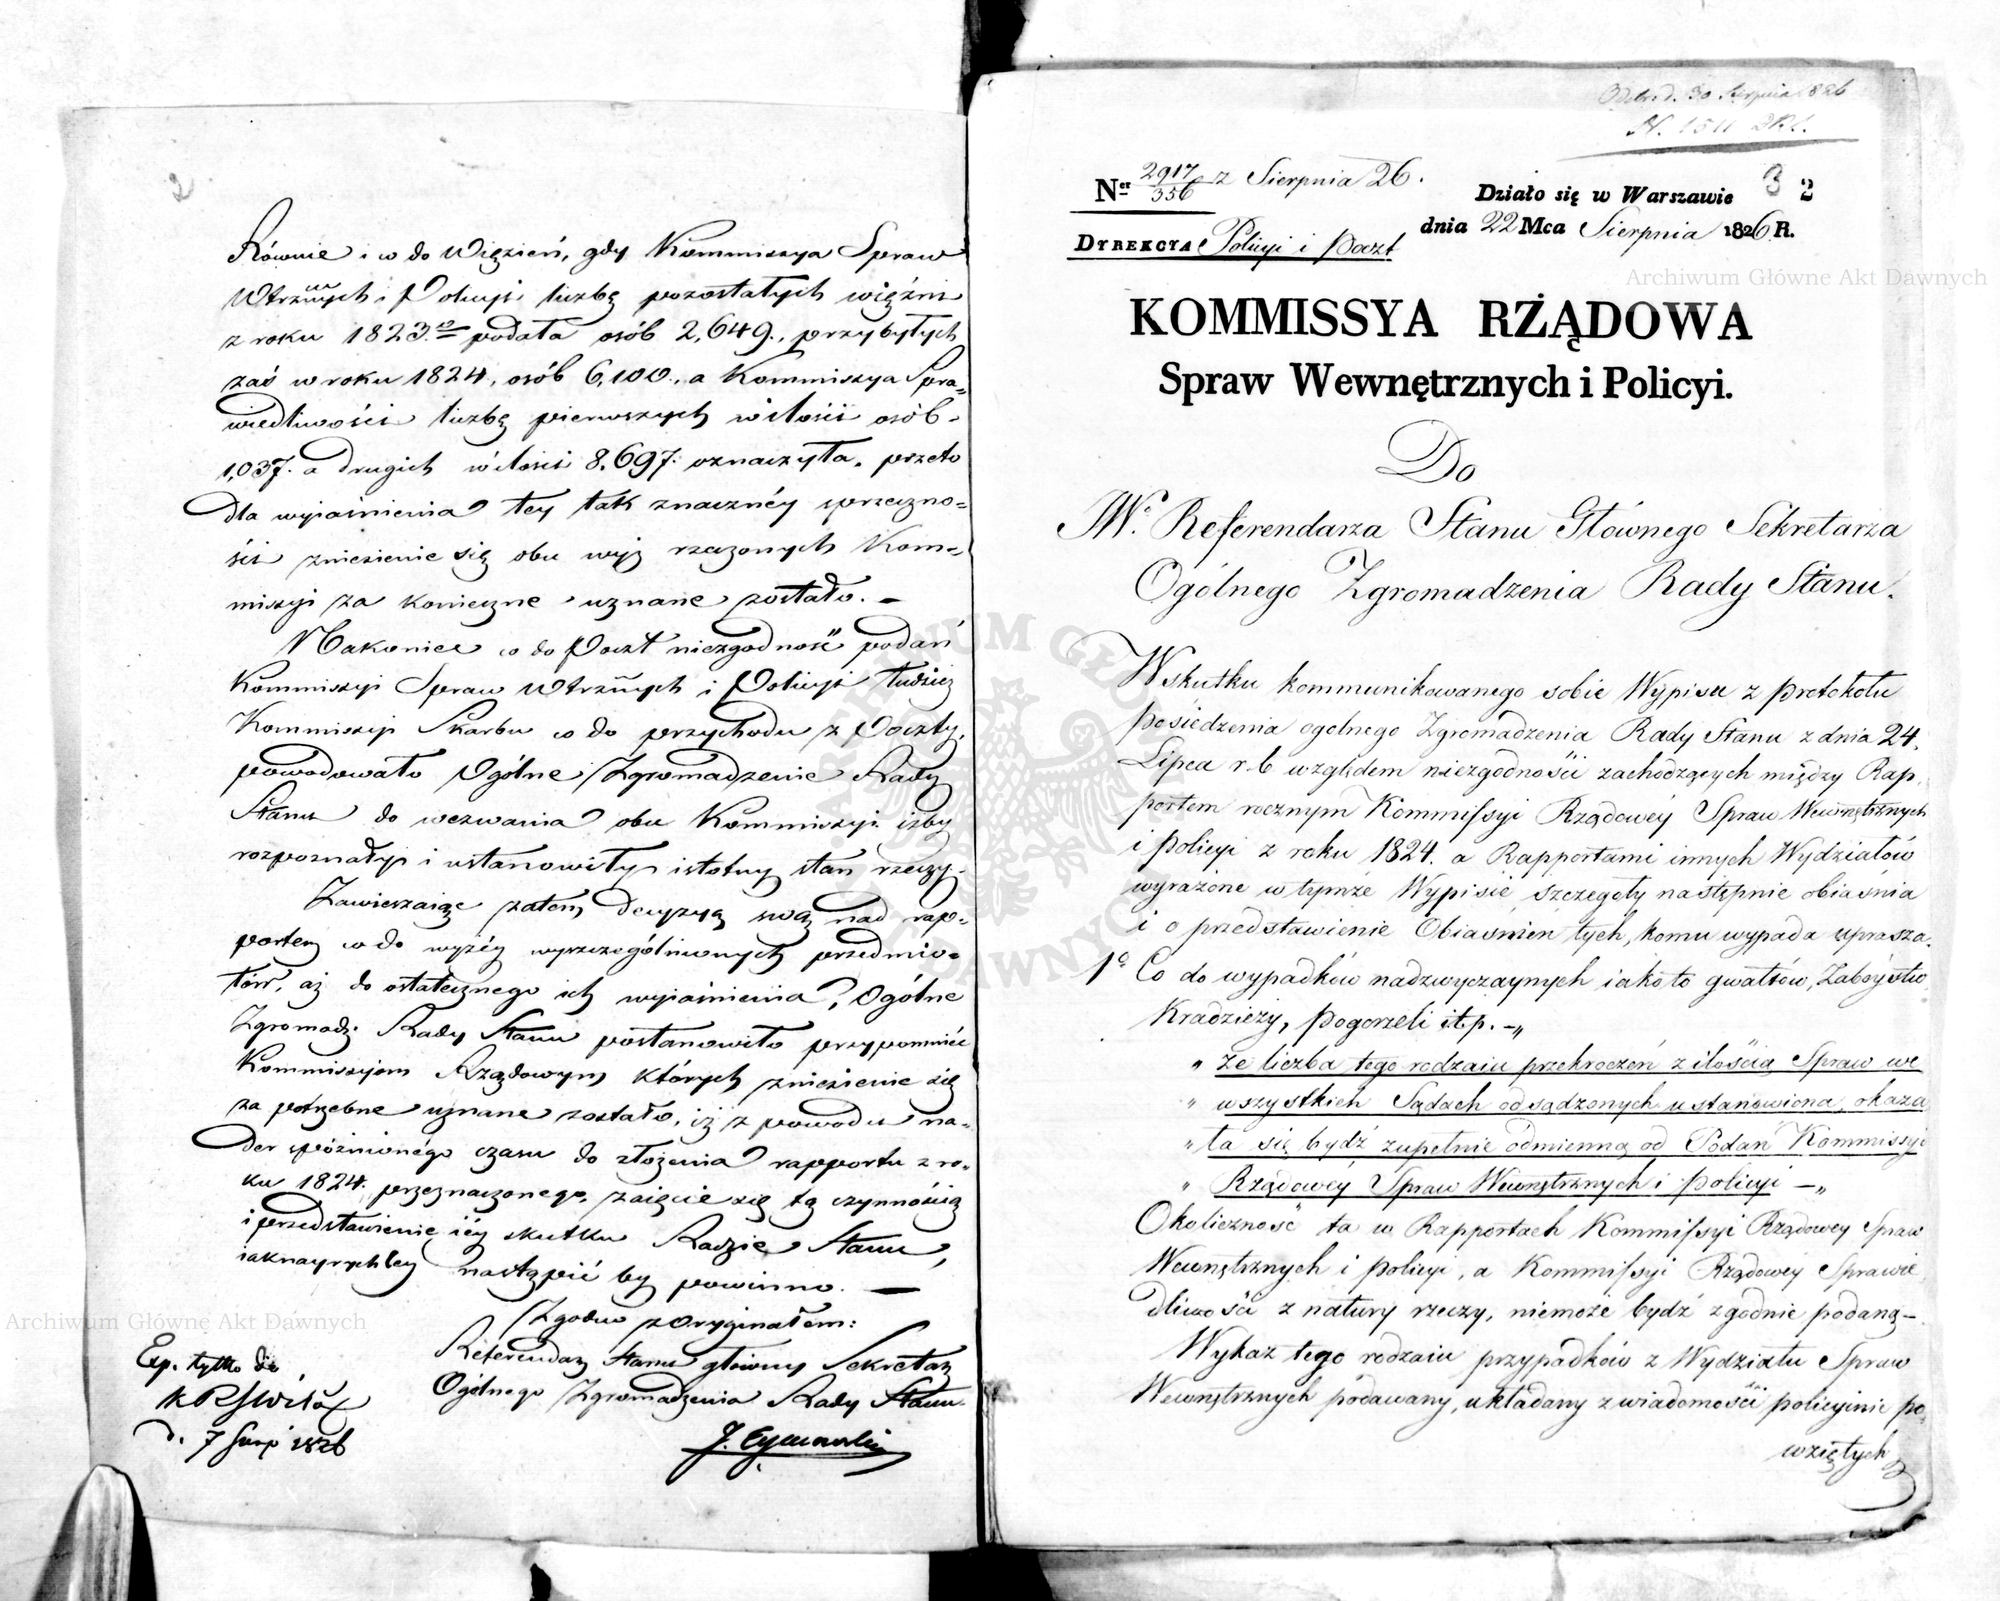 2
Równie i co do Więzień, gdy Kommissya Spraw
Wtrznych i Policyi liczbę pozostałych więźni
z roku 1823.go podała osób 2,649., przybyłych
zaś w roku 1824, osób 6,100., a Kommissya Spra=
wiedliwości liczbę pierwszych w ilości osób
1,037. a drugich w ilości 8,697. oznaczyła, przeto
dla wyiaśnienia tey tak znacznéy sprzeczno=
ści zniesienie się obu wyż rzeczonych Kom=
missyi za konieczne uznane zostało. —
Nakoniec co do Poczt niezgodność podań
Kommissyi Spraw Wtrznych i Policyi tudzież
Kommissyi Skarbu co do przychodu z Poczty,
powodowało Ogólne Zgromadzenie Rady
Stanu do wezwania obu Kommissyi iżby
rozpoznały i ustanowiły istotny stan rzeczy.
Zawieszaiąc zatem decyzyą swą nad rap=
portem co do wyżéy wyszczególnionych przedmio=
tów, aż do ostatecznego ich wyiaśnienia, Ogólne
Zgromadz: Rady Stanu postanowiło przypomnieć
Kommissyom Rządowym których zniesienie się
za potrzebne uznane zostało, iż z powodu na=
der spóźnionégo czasu do złożenia rapportu z ro=
ku 1824. przeznaczonego, zaięcie się tą czynnością
i przedstawienie iéy skutku Radzie Stanu,
iaknayrychley nastąpić by powinno. —
Zgodno z Oryginałem:
Referendarz Stanu główny Sekretarz
Ogólnego Zgromadzenia Rady Stanu
Exp. tylko do
d. 7 Sierp 1826
Odebr d. 30 Sierpnia 1826
N. 1511
Ner 2917/356 z Sierpnia 26.
Działo się w Warszawie 3 2
dnia 22 Mca Sierpnia 1826 R.
Dyrekcya Policyi i Poczt
KOMMISSYA RŻĄDOWA
Spraw Wewnętrznych i Policyi.
Do
JW. Referendarza Stanu Głównego Sekretarza
Ogólnego Zgromadzenia Rady Stanu.
Wskutku kommunikowanego sobie Wypisu z protokołu
posiedzenia ogolnego Zgromadzenia Rady Stanu z dnia 24.
Lipca r. b względem niezgodności zachodzących między Rap=
portem rocznym Kommissyi Rządowéy Spraw Wewnętrznych
i Policyi z roku 1824. a Rapportami innych Wydziałów
wyrażone w tymże Wypisie, szczegóły następnie obiaśnia
i o przedstawienie Obiaśnien tych, komu wypada uprasza.
1o Co do wypadków nadzwyczaynych iako to gwałtów, Zabóystw
Kradzieży, pogorzeli itp. — „
„ że liczba tego rodzaiu przekroczeń z ilością Spraw we
„ wszystkich Sądach odsądzonych ustanowiona, okaza
„ ła się bydź zupełnie odmienną od Podań Kommissyi
„ Rządowéy Spraw Wewnętrznych i Policyi — „
Okoliczność ta w Rapportach Kommissyi Rządowey Spraw
Wewnętrznych i Policyi, a Kommissyi Rządowéy Sprawie
dliwości z natury rzeczy, niemoże bydź zgodnie podaną —
Wykaz tego rodzaiu przypadków z Wydziału Spraw
Wewnętrznych podawany, układany z wiadomości policyinie po=
wziętych
Archiwum Główne Akt Dawnych
Archiwum Główne Akt Dawnych
ARCHIWUM GŁÓWNE AKT DAWNYCH